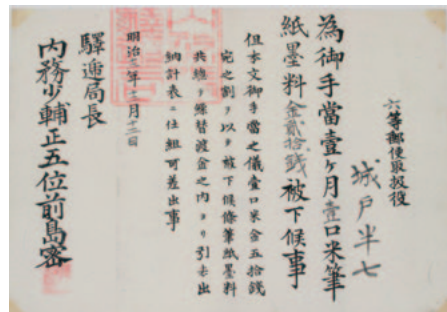 六等郵便取扱役
城戸半七
為御手當壹ヶ月壹口米筆
紙墨料金貳拾銭被下候事
但本文御手當之儀壹口米金五拾銭
宛之割ヲ以テ被下候條筆紙墨料
共繰替渡金之内ヨリ引去出
納計表ニ仕組可差出事
明治 年 月 日
驛逓局長
内務少輔正五位前島密